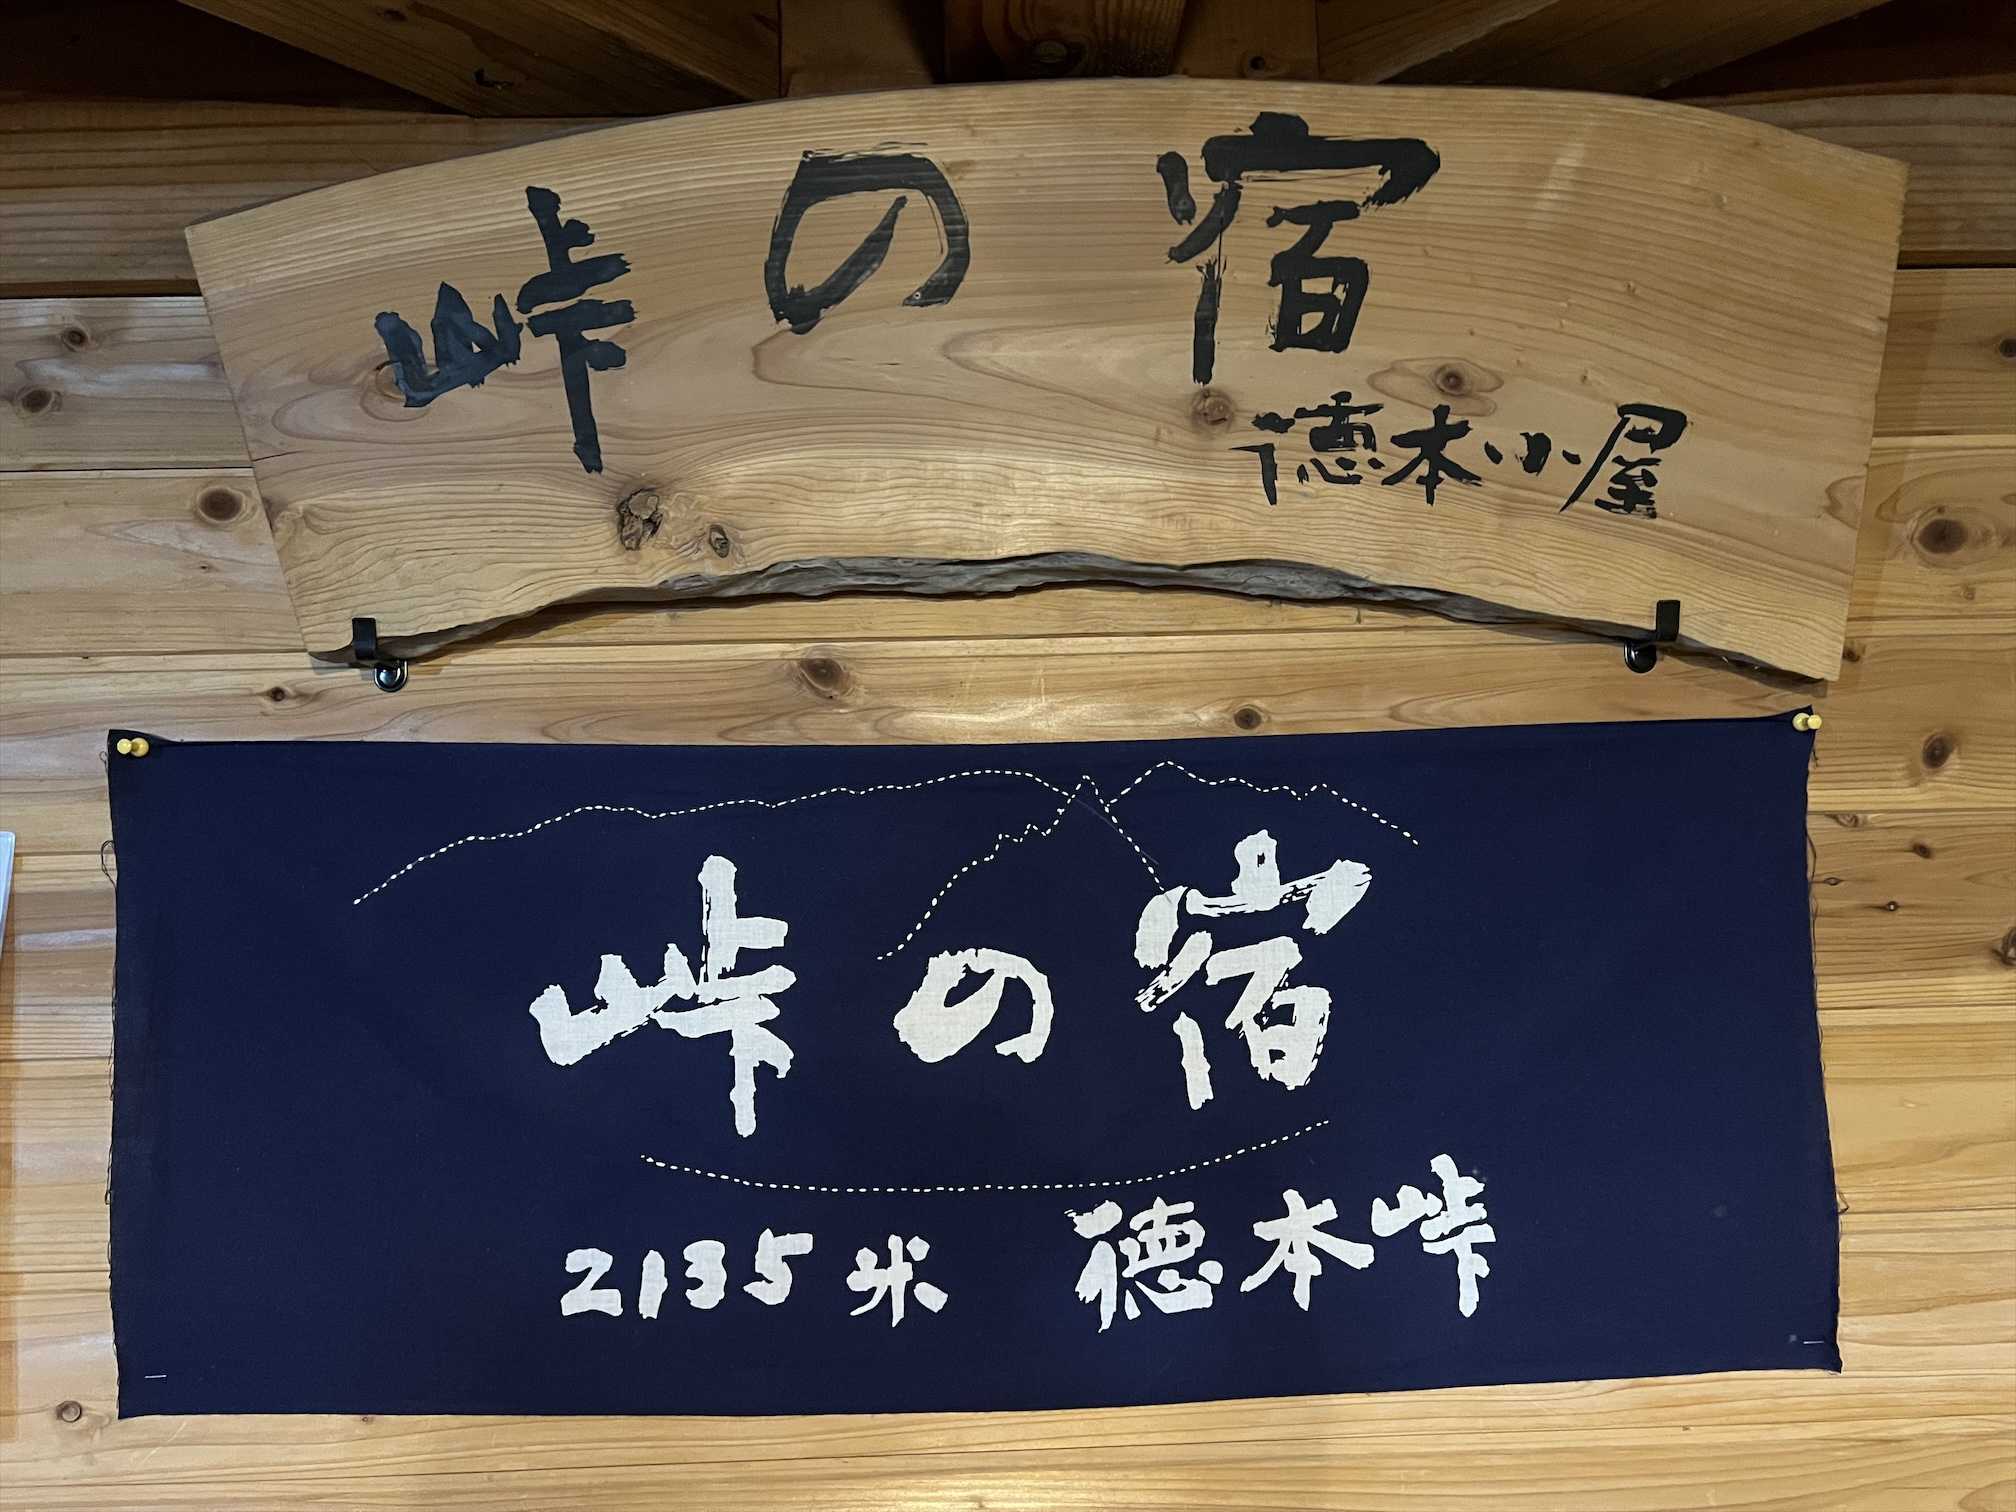 峠の宿
徳本小屋
峠の宿
2135米 徳本峠